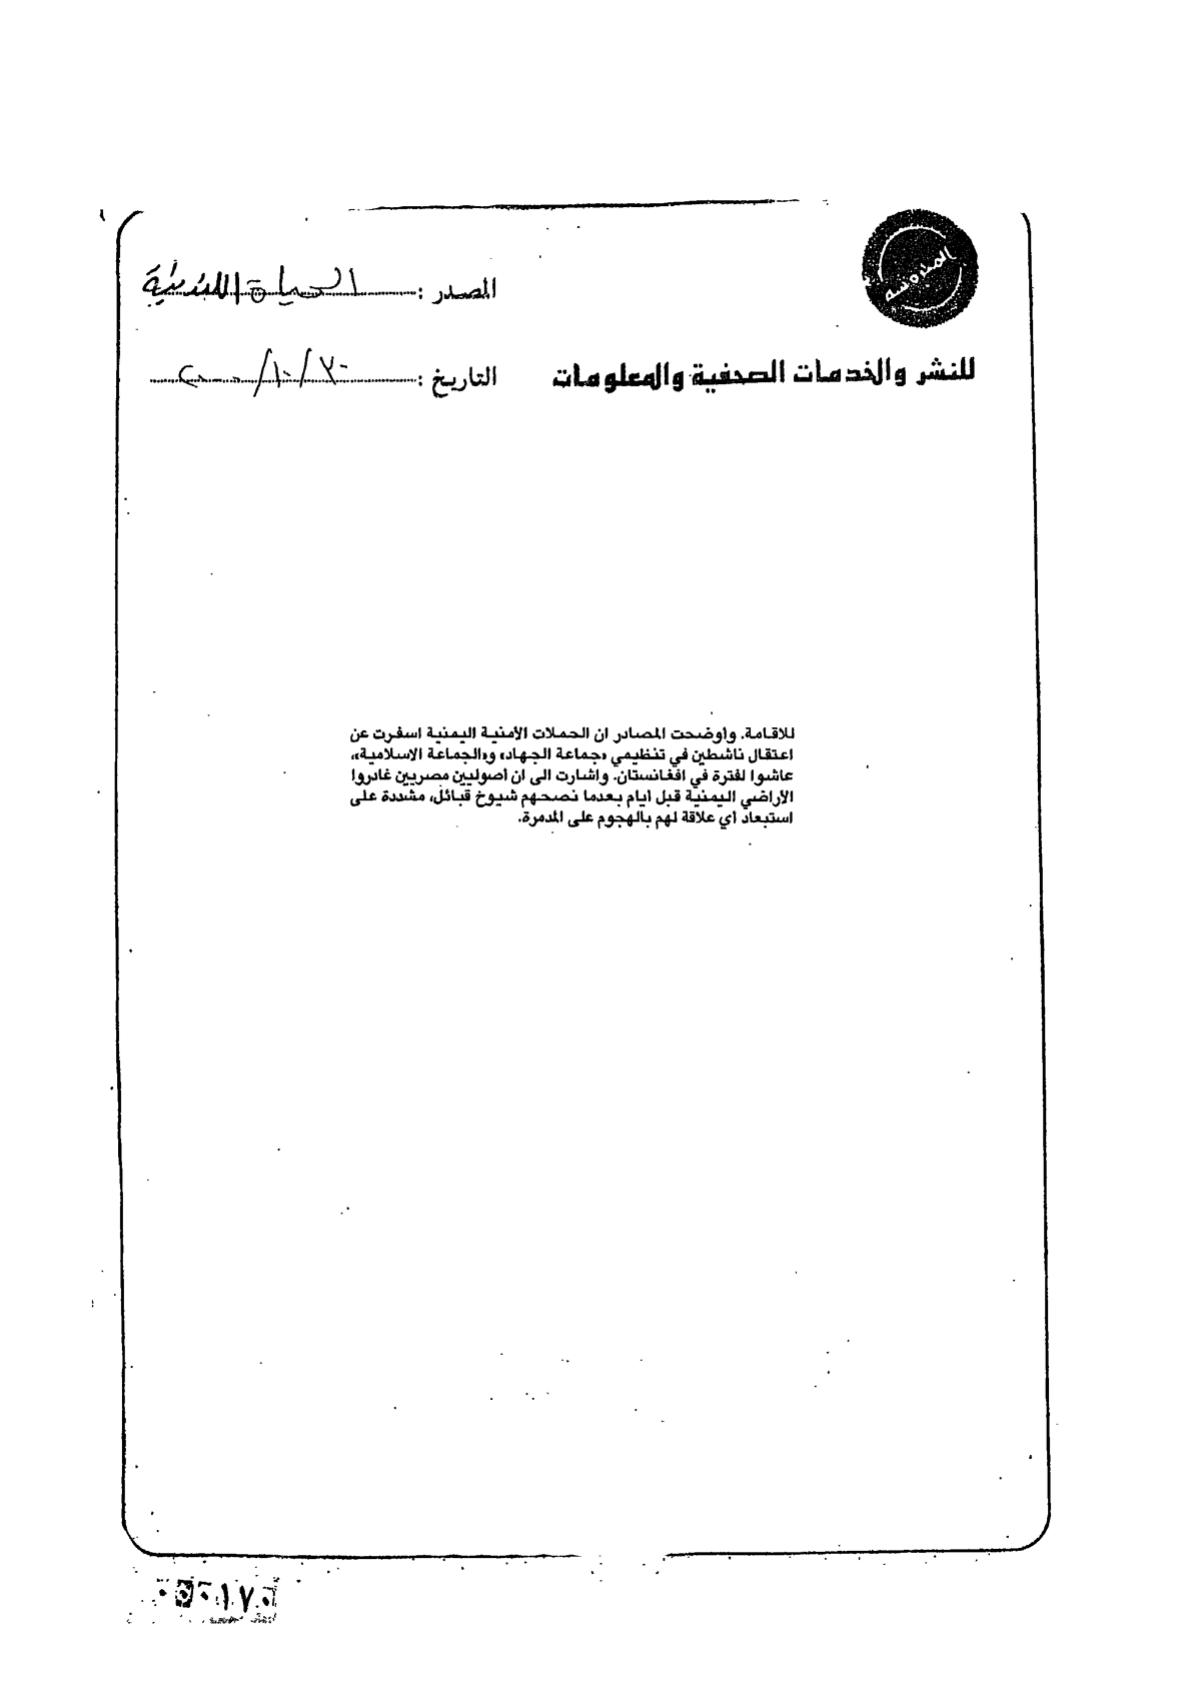 المصدر : الحياة اللندنية
للنشر والخدمات الصحفية والمعلومات
التاريخ : ٢٠٠٠/١٠/٢٠
للاقامة. وأوضحت المصادر ان الحملات الأمنية اليمنية اسفرت عن
اعتقال ناشطين في تنظيمي «جماعة الجهاد» و«الجماعة الاسلامية»،
عاشوا لفترة في افغانستان. واشارت الى ان اصوليين مصريين غادروا
الأراضي اليمنية قبل أيام بعدما نصحهم شيوخ قبائل، مشددة على
استبعاد أي علاقة لهم بالهجوم على المدمرة.